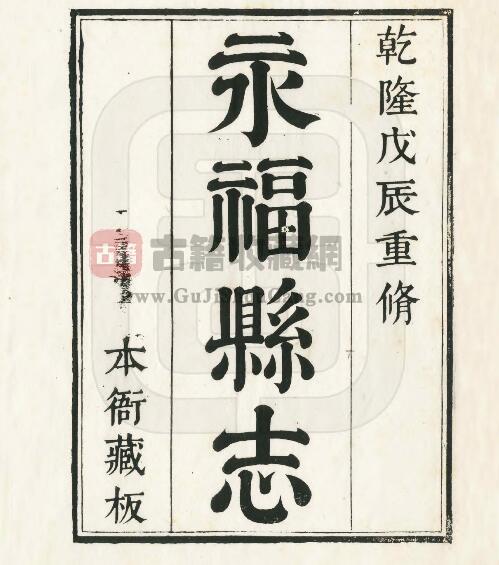 乾隆戊辰重脩
永福縣志
本衙藏板
古籍
古籍收藏網
www.GuJiShouCang.com